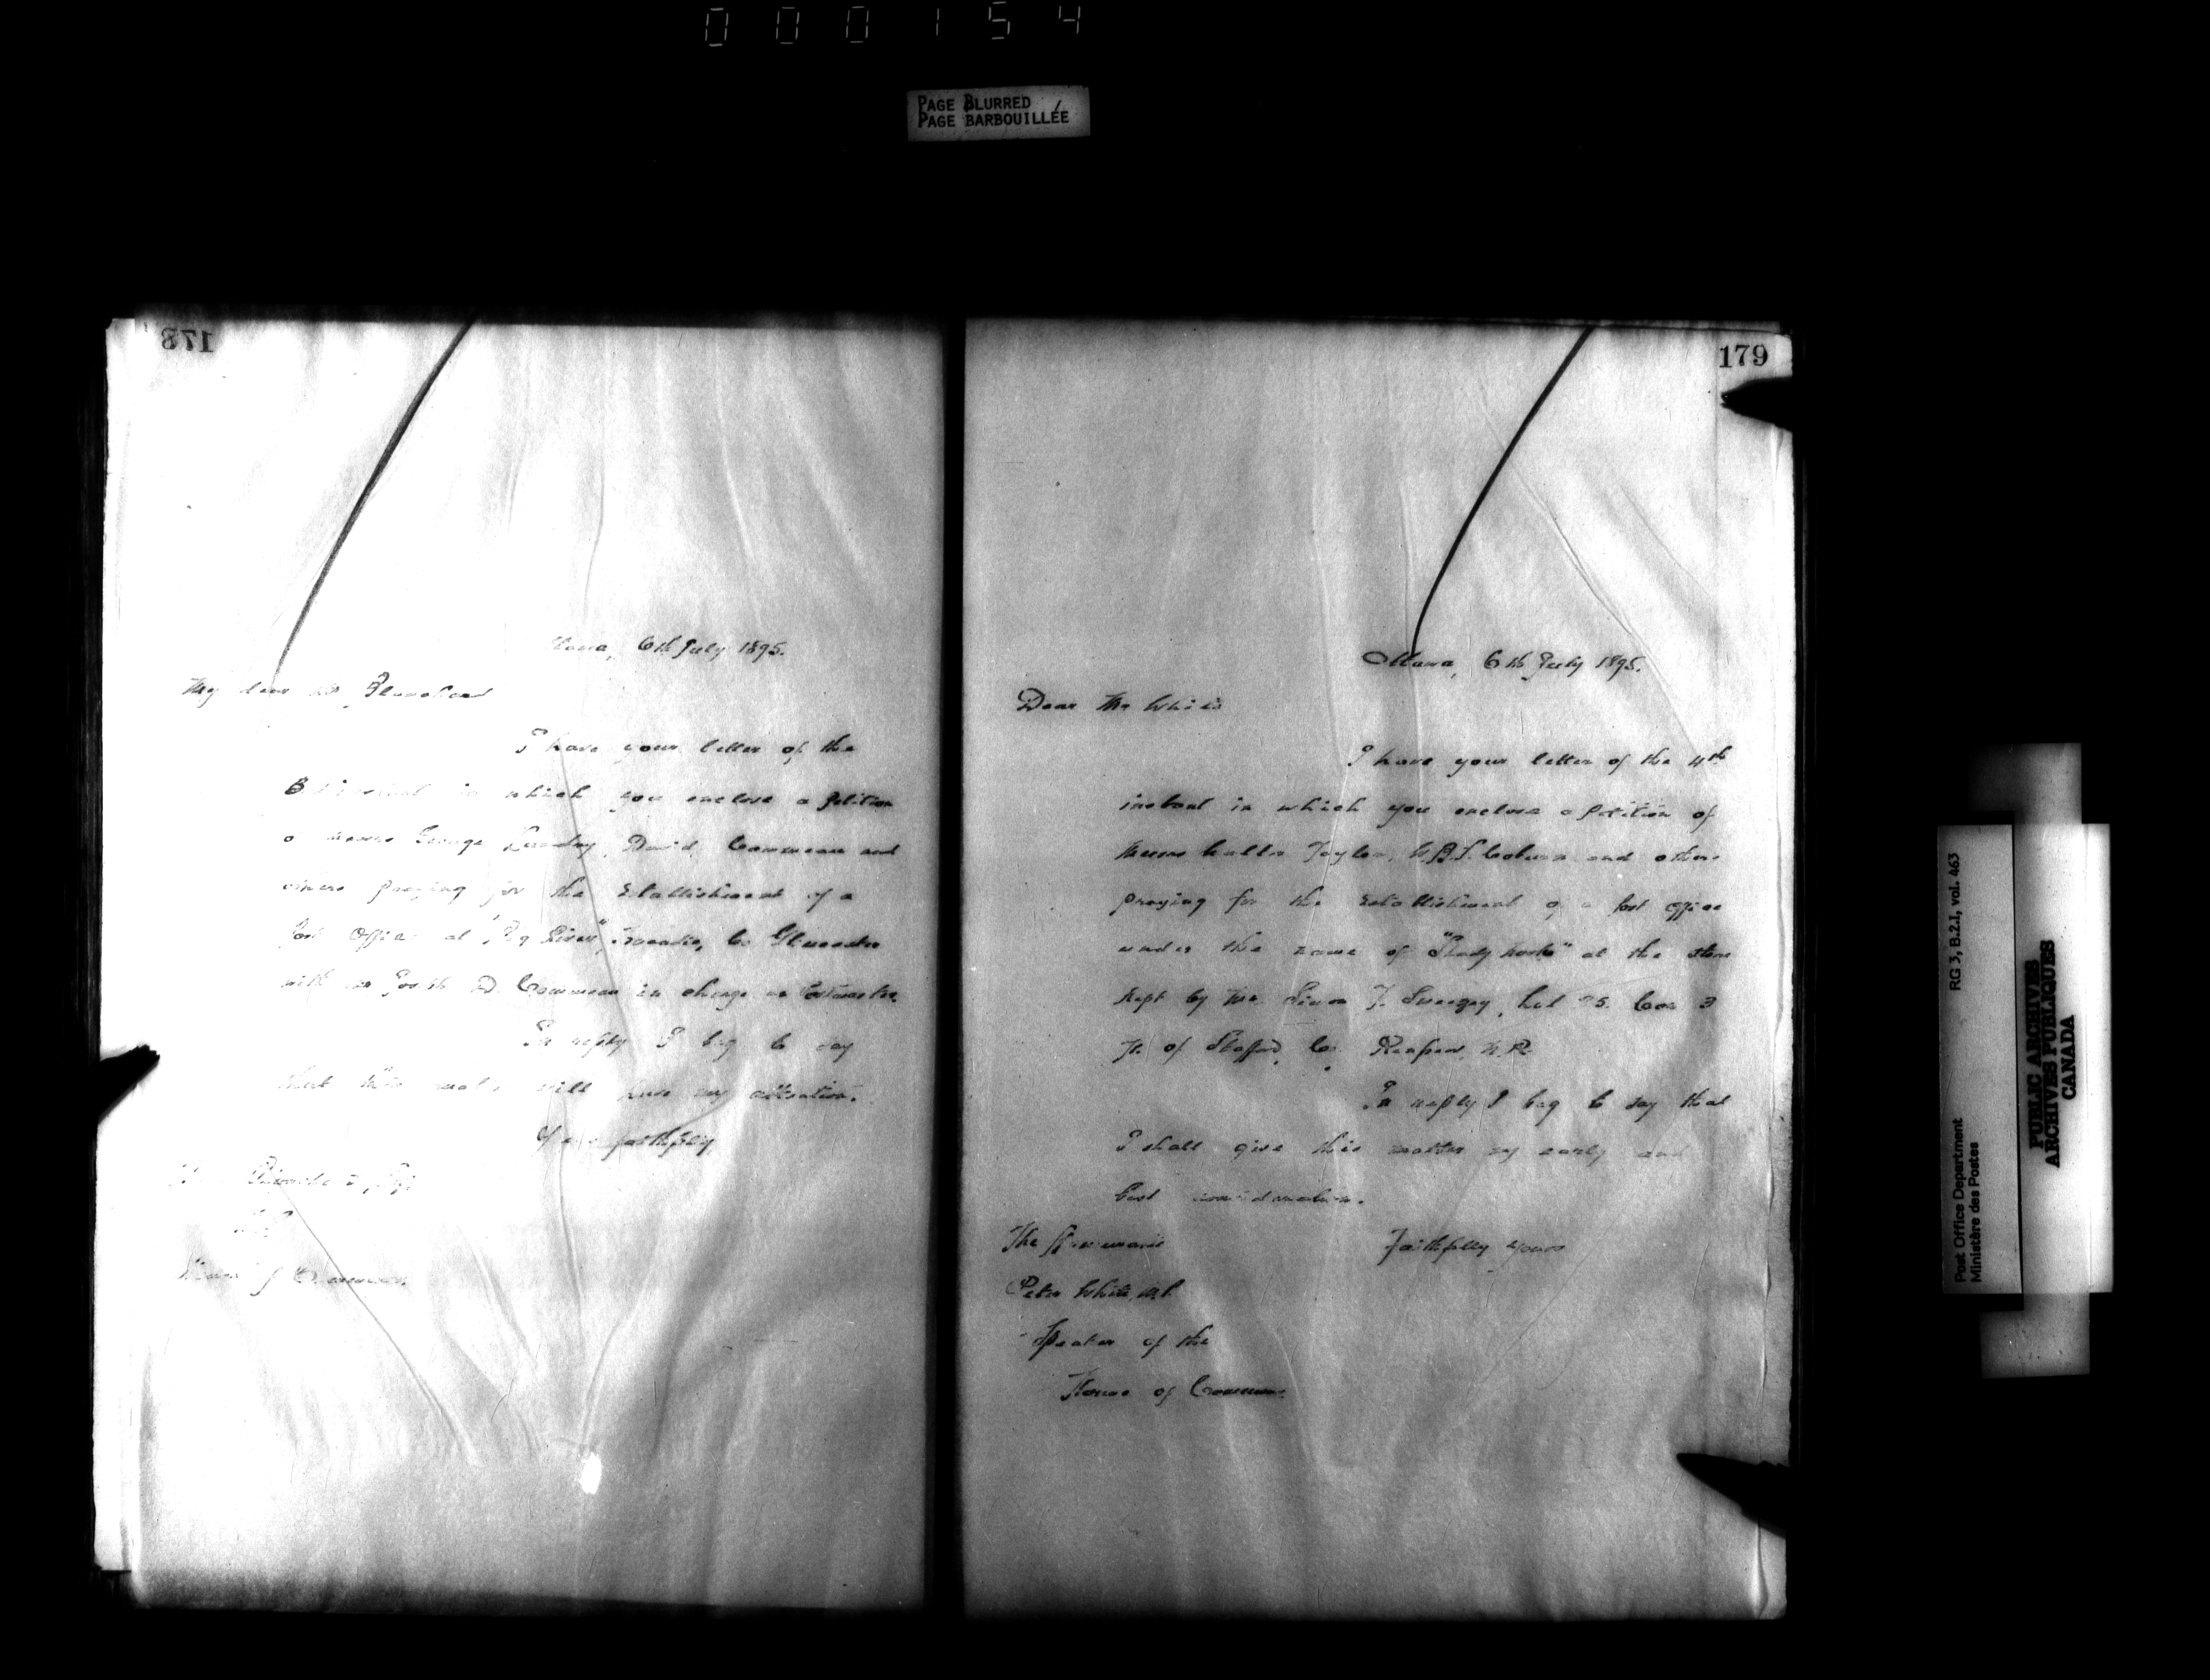 000154
PAGE BLURRED
PAGE BARBOUILLÉE
178
6th July 1895.
My dear Mr Blanchard
I have your letter of the
in which you enclose a petition
George Landry, David Commeau and
others praying for the establishment of a
Post Office at "Big River", Tracadie, Co Gloucester
with D. Commeau in charge as Postmaster.
In reply I beg to say
that this will have my attention.
Yours faithfully,
House of Commons
179
Ottawa, 6th July 1895.
Dear Mr White
I have your letter of the 4th
instant in which you enclose a petition of
Messrs Taylor, Coburn and others
praying for the establishment of a post office
under the name of "Shady Nook" at the store
kept by Mr Simon Sweezey, Lot 25. Con 3
Tp. of Stafford, Co. Renfrew, N.R.
In reply I beg to say that
I shall give this matter my early and
best consideration.
Faithfully yours
The Honourable
Peter White, M.P.
Speaker of the
House of Commons
RG 3, B.2.1, vol. 463
Post Office Department
Ministère des Postes
PUBLIC ARCHIVES
ARCHIVES PUBLIQUES
CANADA